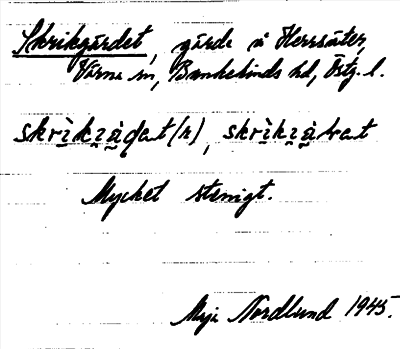 Skrikgärdet, gärde å Herrsäter,
Värna sn, Bankekinds hd, Östg. l.
skrìkɪ̯àḍat (n), skrìkɪ̯àt
Mycket stenigt.
Maja Nordlund 1945.